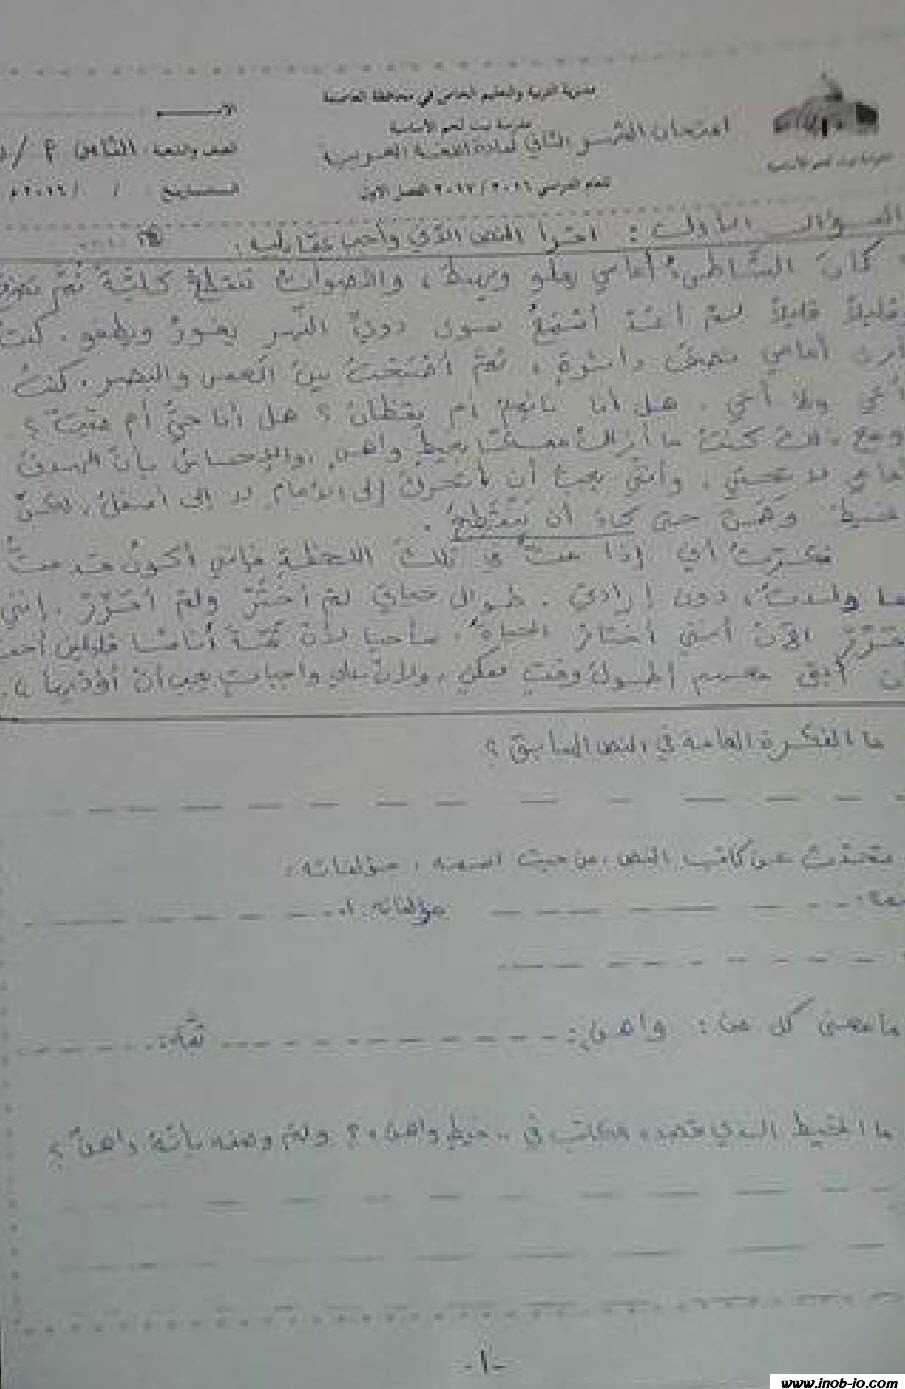 مديرية التربية والتعليم الخاص في محافظة العاصمة
مدرسة بيت لحم الأساسية
امتحان الشهر الثاني لمادة اللغة العربية
للعام الدراسي ٢٠١٦/٢٠١٧ الفصل الأول
الاســـم :
الصف والشعبة: الثامن /
التـــاريخ : / / ٢٠١٦ م
السؤال الأول : اقرأ النص الآتي وأجب عما يليه :
كانَ الشاطئُ أمامي يعلو ويهبط ، والأصوات تنقطع كليّةً ثُمّ
قليلاً قليلاً لم أعُد أسمَعُ سوى دويّ النّهر يغورُ ويطفو . كنتُ
أرى أمامي نصفَ دائرةٍ ، ثمّ أصبَحْتُ بين العمى والبصر . كنتُ
أعي ولا أعي . هل أنا نائمٌ أم يقظانُ ؟ هل أنا حيٌّ أم ميّتٌ ؟
ومع ذلك كنتُ ما أزالُ ممسكًا بخيطٍ واهنٍ ، والإحساس بأنّ الهدفَ
أمامي لا تحتي ، وأنّني يجبُ أن أتحرّكَ إلى الأمام لا إلى أسفل ، لكنّ
الخيطَ وهَنَ حتى كادَ أن يَنْقَطِعَ .
فكّرتُ أني إذا متُّ في تلكَ اللحظةِ فإنّني أكونُ قد متُّ
كما ولدتُ ، دون إرادتي . طوال حياتي لم أختَرْ ولم أُقَرِّرْ . إنّني
أُقرّرُ الآنَ أنّني أختارُ الحياةَ . سأحيا لأنّ ثَمّةَ أُناسًا قليلين أحبّ
أن أبقى معهم أطولَ وقتٍ ممكنٍ ، ولأنّ عليّ واجباتٍ يجبُ أن أؤدّيها .
ما الفكرة العامة في النص السابق ؟
تحدّث عن كاتب النص ، من حيث اسمه ، مؤلفاته .
مؤلفاته : ١.
ما معنى كل من : واهن : ثَمّة :
ما الخيط الذي قصده الكاتب في " خيط واهن " ؟ ولمَ وصفه بأنّه واهن ؟
-١-
www.inob-io.com